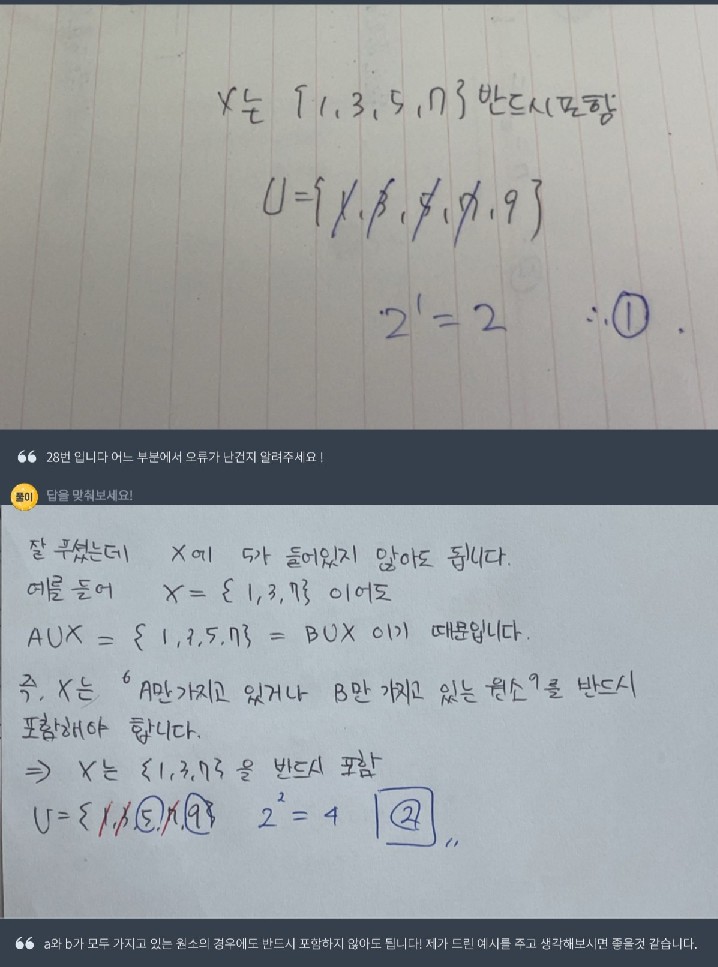 X는 {1, 3, 5, 7} 반드시 포함
U={1, 3, 5, 7, 9}
2¹ = 2 ∴ ①.
❝ 28번 입니다 어느 부분에서 오류가 난건지 알려주세요 !
풀이 답을 맞춰보세요!
잘 푸셨는데 X에 5가 들어있지 않아도 됩니다.
예를 들어 X = { 1, 3, 7} 이어도
AUX = { 1, 3, 5, 7} = BUX 이기 때문입니다.
즉, X는 ‘A만 가지고 있거나 B만 가지고 있는 원소’를 반드시
포함해야 합니다.
⇒ X는 {1, 3, 7} 을 반드시 포함
U = { 1, 3, 5, 7, 9} 2² = 4 ②
❝ a와 b가 모두 가지고 있는 원소의 경우에도 반드시 포함하지 않아도 됩니다! 제가 드린 예시를 주고 생각해보시면 좋을것 같습니다.